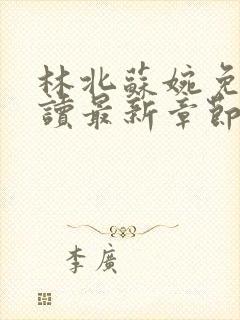 林北蘇婉免
讀最新章節
李廣